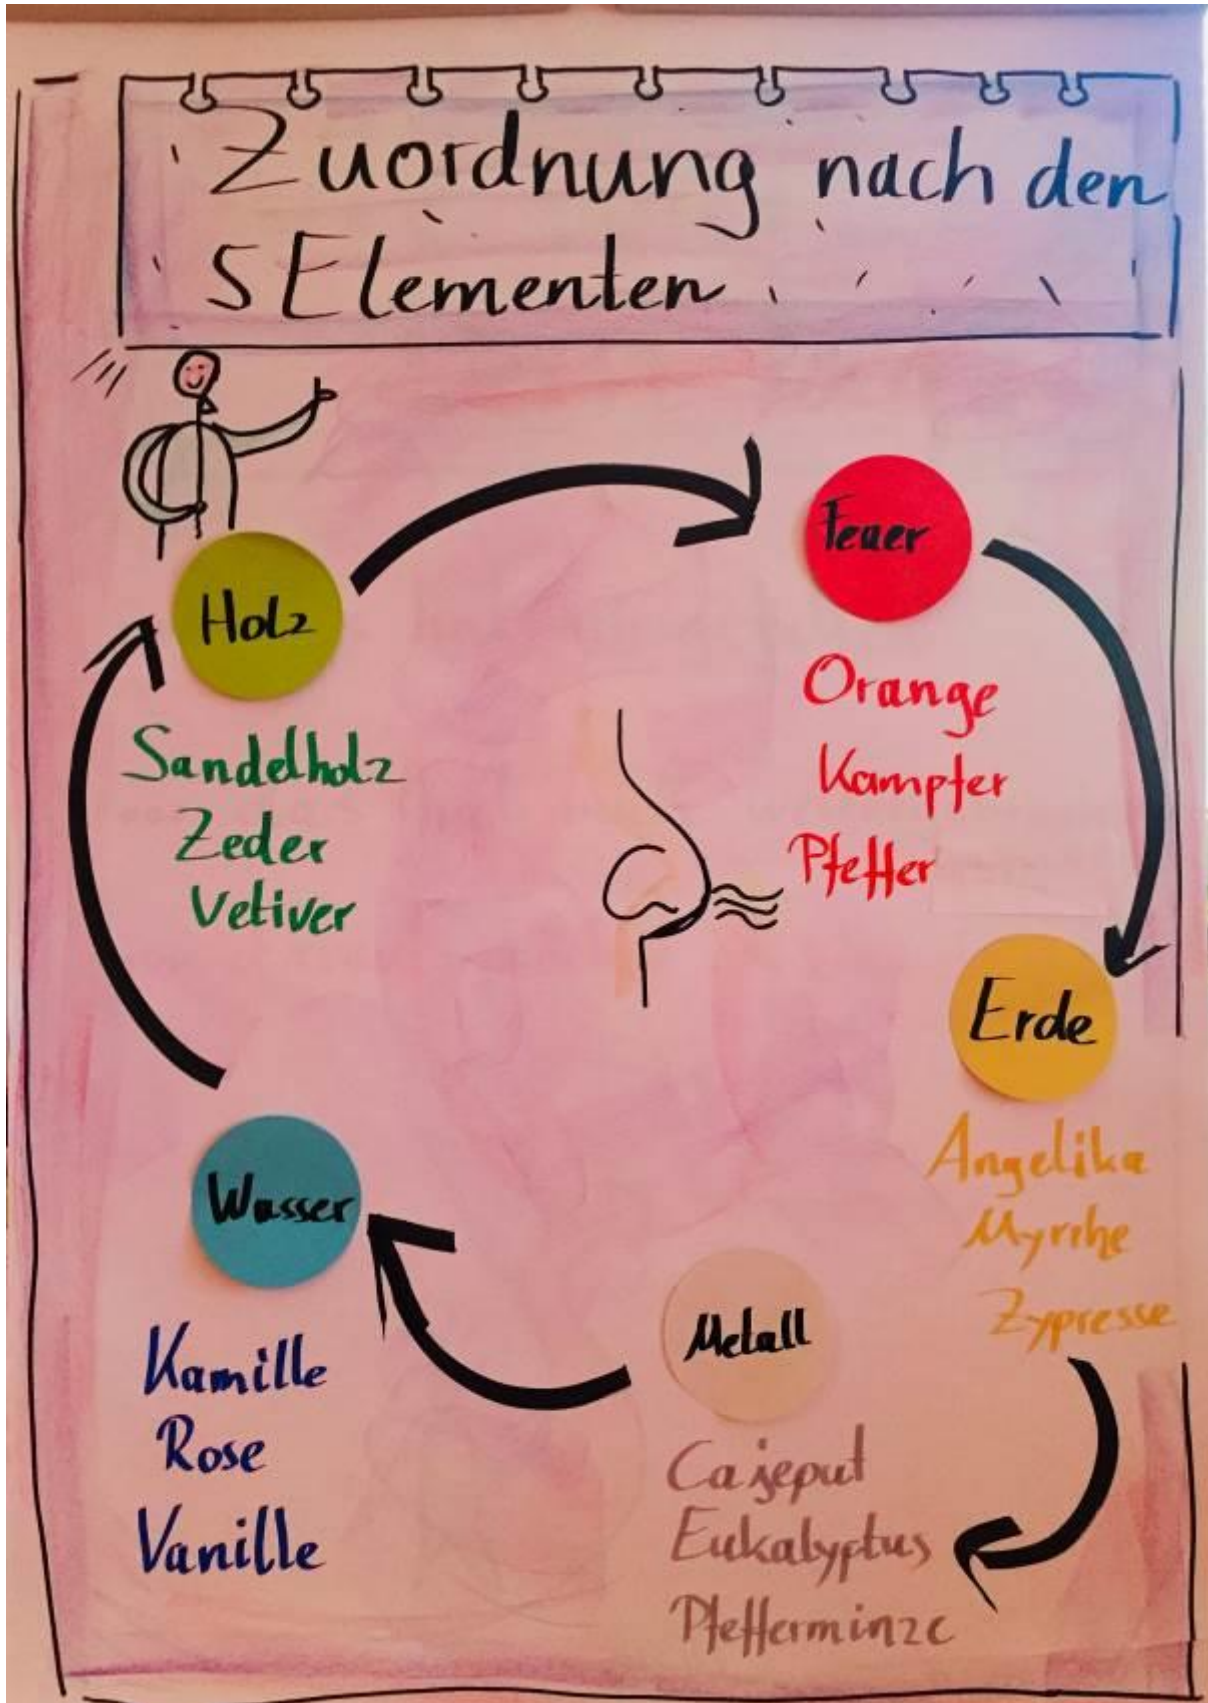 Zuordnung nach den
5 Elementen
Holz
Sandelholz
Zeder
Vetiver
Feuer
Orange
Kampfer
Pfeffer
Erde
Angelika
Myrrhe
Zypresse
Metall
Cajeput
Eukalyptus
Pfefferminze
Wasser
Kamille
Rose
Vanille